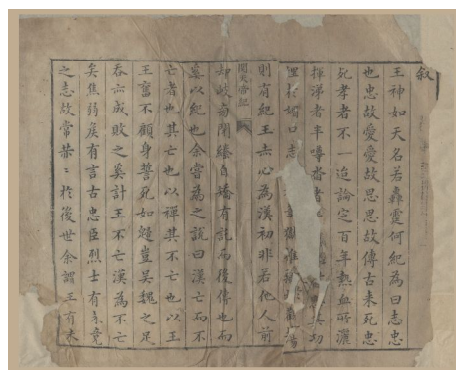 叙
王神如天名若轟霆何紀為曰志忠
也忠故愛愛故思思故傳古来死忠
死孝者不一迨論定百年熱血所灑
揮涕者半嚼齒者功
媚口志
則有紀王赤心為漢初非若他人前
帝紀
南開自矯有託而後傳也而
奚以紀也余嘗為之說曰漢亡而不
亡者也其亡也以禪其不亡也以王
王奮不顧身誓死如豈吴魏之足
吞成敗之奚計王不亡漢為不亡
矣焦弱矦有言古忠臣烈士有未竟
之志故常〻於後世余謂王有未